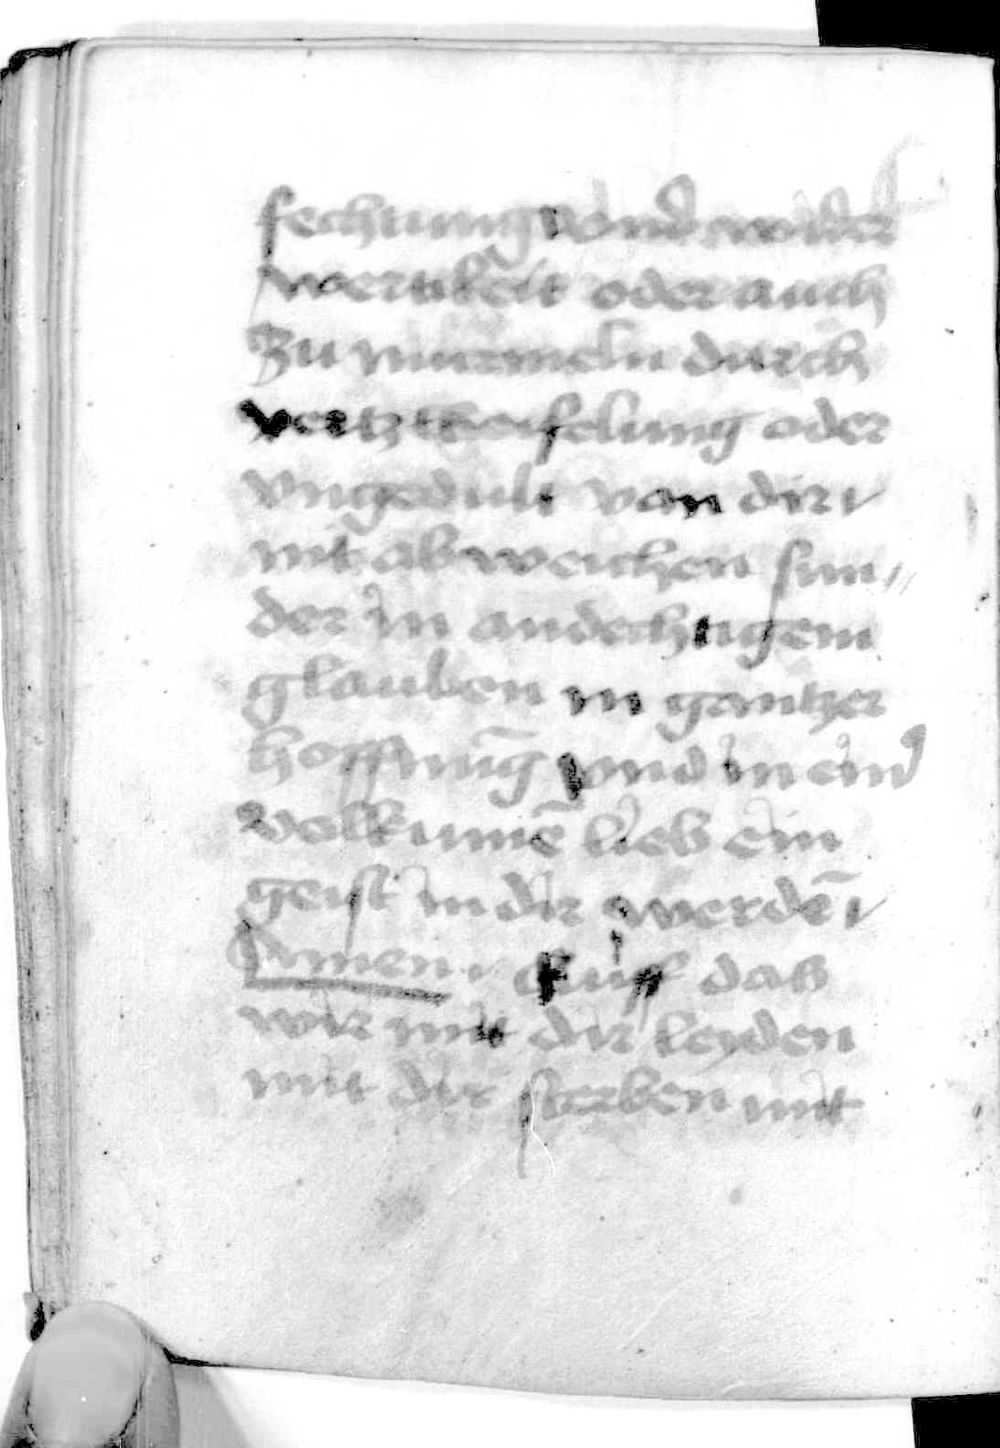 fechtung vnd wider
wertikeit oder auch
Zu murmeln durch
vertzweifelung oder
vngedult von dir
nit ab weichen sun„
der in andechtigem
glauben in gantzer
hoffnūg vnd in eind
volkumē lieb ein
geist in dir werdē
Amen. Auff das
wir mit dir leyden
mit dir sterben mit